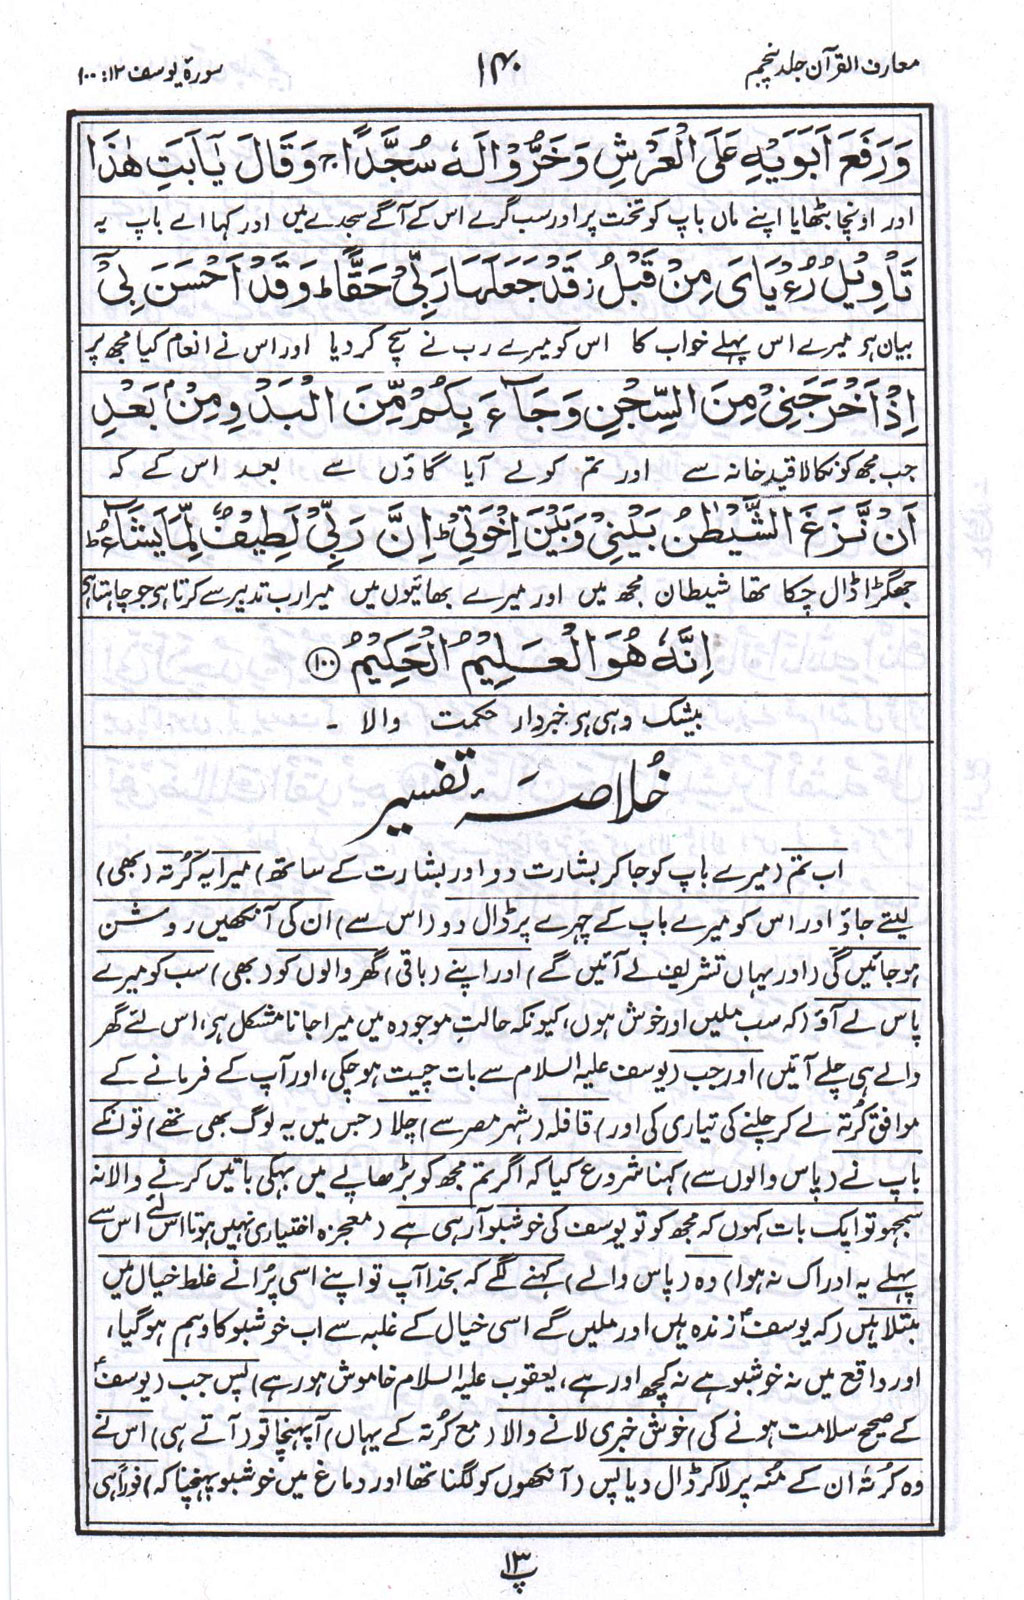 معارف القرآن جلد پنجم
۱۴۰
سورۃ یوسف ۱۲: ۱۰۰
وَرَفَعَ اَبَوَیْہِ عَلَی الْعَرْشِ وَخَرُّوْا لَہٗ سُجَّدًا ۚ وَقَالَ یٰۤاَبَتِ ھٰذَا
اور اونچا بٹھایا اپنے ماں باپ کو تخت پر اور سب گرے اس کے آگے سجدے میں اور کہا اے باپ یہ
تَاْوِیْلُ رُءْیَایَ مِنْ قَبْلُ ز قَدْ جَعَلَہَا رَبِّیْ حَقًّا ط وَقَدْ اَحْسَنَ بِیْۤ
بیان ہو میرے اس پہلے خواب کا اس کو میرے رب نے سچ کر دیا اور اس نے انعام کیا مجھ پر
اِذْ اَخْرَجَنِیْ مِنَ السِّجْنِ وَجَآءَ بِکُمْ مِّنَ الْبَدْوِ مِنْۢ بَعْدِ
جب مجھ کو نکالا قید خانہ سے اور تم کو لے آیا گاؤں سے بعد اس کے کہ
اَنْ نَّزَغَ الشَّیْطٰنُ بَیْنِیْ وَبَیْنَ اِخْوَتِیْ ط اِنَّ رَبِّیْ لَطِیْفٌ لِّمَا یَشَآءُ ط
جھگڑا ڈال چکا تھا شیطان مجھ میں اور میرے بھائیوں میں میرا رب تدبیر سے کرتا ہو جو چاہتا ہی
اِنَّہٗ ھُوَ الْعَلِیْمُ الْحَکِیْمُ ﴿۱۰۰﴾
بیشک وہی ہو خبردار حکمت والا ۔
خُلاصۂ تفسیر
اب تم (میرے باپ کو جا کر بشارت دو اور بشارت کے ساتھ) میرا یہ کُرتہ (بھی)
لیتے جاؤ اور اس کو میرے باپ کے چہرے پر ڈال دو (اس سے) ان کی آنکھیں روشن
ہو جائیں گی (اور یہاں تشریف لے آئیں گے) اور اپنے (باقی) گھر والوں کو (بھی) سب کو میرے
پاس لے آؤ (کہ سب ملیں اور خوش ہوں، کیونکہ حالتِ موجودہ میں میرا جانا مشکل ہو، اس لئے گھر
والے ہی چلے آئیں) اور جب (یوسف علیہ السلام سے بات چیت ہو چکی، اور آپ کے فرمانے کے
موافق کُرتہ لے کر چلنے کی تیاری کی اور) قافلہ (شہر مصر سے) چلا (جس میں یہ لوگ بھی تھے) تو انکے
باپ نے (پاس والوں سے) کہنا شروع کیا کہ اگر تم مجھ کو بڑھاپے میں بہکی باتیں کرنے والا نہ
سمجھو تو ایک بات کہوں کہ مجھ کو تو یوسف کی خوشبو آ رہی ہے (معجزہ اختیاری نہیں ہوتا اس لئے اس سے
پہلے یہ ادراک نہ ہوا) وہ (پاس والے) کہنے لگے کہ بخدا آپ تو اپنے اسی پُرانے غلط خیال میں
مبتلا ہیں (کہ یوسفؑ زندہ ہیں اور ملیں گے اسی خیال کے غلبہ سے اب خوشبو کا وہم ہو گیا،
اور واقع میں نہ خوشبو ہے نہ کچھ اور ہے، یعقوب علیہ السلام خاموش ہو رہے) پس جب (یوسفؑ
کے صحیح سلامت ہونے کی) خوش خبری لانے والا (مع کُرتہ کے یہاں) آپہنچا تو (آتے ہی) اس نے
وہ کُرتہ ان کے مُنہ پر لا کر ڈال دیا پس (آنکھوں کو لگنا تھا اور دماغ میں خوشبو پہنچنا کہ) فوراً ہی
پ ۱۳